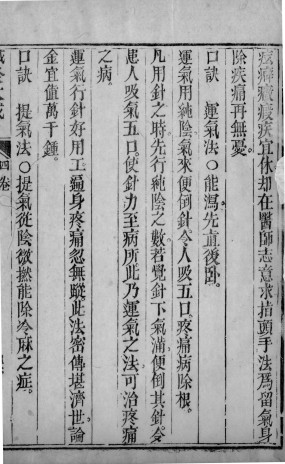 痃癖癥瘕疾宜休却在醫師志意求指頭手法爲留氣身
除疾痛再無憂。
口訣　運氣法○能瀉先直後臥。
運氣用純陰氣來便倒針令人吸五口疼痛病除根。
凡用針之時先行純陰之數若覺針下氣滿便倒其針令
患人吸氣五口使針力至病所此乃運氣之法可治疼痛
之病。
運氣行針好用工遍身疼痛忽無蹤此法密傳堪濟世論
金宜值萬千鍾。
口訣　提氣法○提氣從陰微撚能除冷麻之症。
四卷